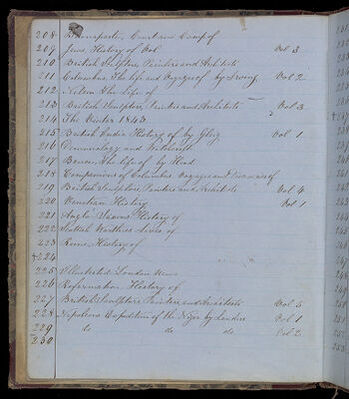 208 Buonaparte, Court and Camp of
209 Jews History of Vol Vol 3
210 British Sculptors Painters and Architects
211 Columbus, The life and Voyages of by Irving Vol 2
212 Nelson The life of
213 British Sculptors, Painters and Architects Vol 3
214 The 1843
215 British India History of by Gleig Vol 1
216 Demonology and Witchcraft
217 Bruce, The life of by Head
218 Companions of Columbus Voyages and Discoveries of
219 British Sculptors, Painters and Architects Vol 4
220 Venetian History Vol 1
221 Anglo Saxons History of
222 Scottish Worthies Lives of
223 Rome, History of
224
225 Illustrated London News
226 Reformation History of
227 British Sculptors Painters and Architects Vol 5
228 Expedition of the Niger by Lander Vol 1
229 do do do Vol 2
230